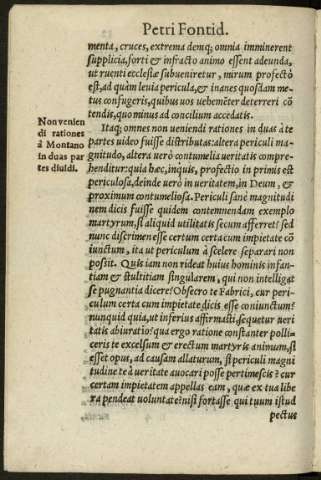 Petri Fontid.
menta, cruces, extrema demq; omnia imminerent
supplicia, forti & infracto animo essent adeunda,
ut ruenti ecclesiæ subueniretur, mirum profectò
est, ad quàm leuia pericula, & inanes quosdam me-
tus confugeris, quibus uos uehemēter deterreri cō
tendis, quo minus ad concilium accedatis.
Itaq; omnes non ueniendi rationes in duas à te
partes uideo fuisse distributas: altera periculi ma-
gnitudo, altera uerò contumelia ueritatis compre-
henditur: quia hæc, inquis, profectio in primis est
periculosa, deinde uerò in ueritatem, in Deum, &
proximum contumeliosa. Periculi sanè magnitudi
nem dicis fuisse quidem contemnendam exemplo
martyrum, si aliquid utilitatis secum afferret: sed
nunc discrimen esse certum certa cum impietate cō
iunctum, ita ut periculum à scelere separari non
possit. Quis iam non rideat huius hominis infan-
tiam & stultitiam singularem, qui non intelligat
se pugnantia dicere? Obsecro te Fabrici, cur peri-
culum certa cum impietate dicis esse coniunctum?
nunquid quia, ut inferius affirmas, sequetur ueri
tatis abiuratio? qua ergo ratione constanter polli-
ceris te excelsum & erectum martyris animum, si
esset opus, ad causam allaturum, si periculi magni
tudine te à ueritate auocari posse pertimescis? cur
certam impietatem appellas eam, quæ ex tua libe
ra pendeat uoluntate? nisi fortasse qui tuum istud
pectus
Non venien
di rationes
à Montano
in duas par
tes diuidi.